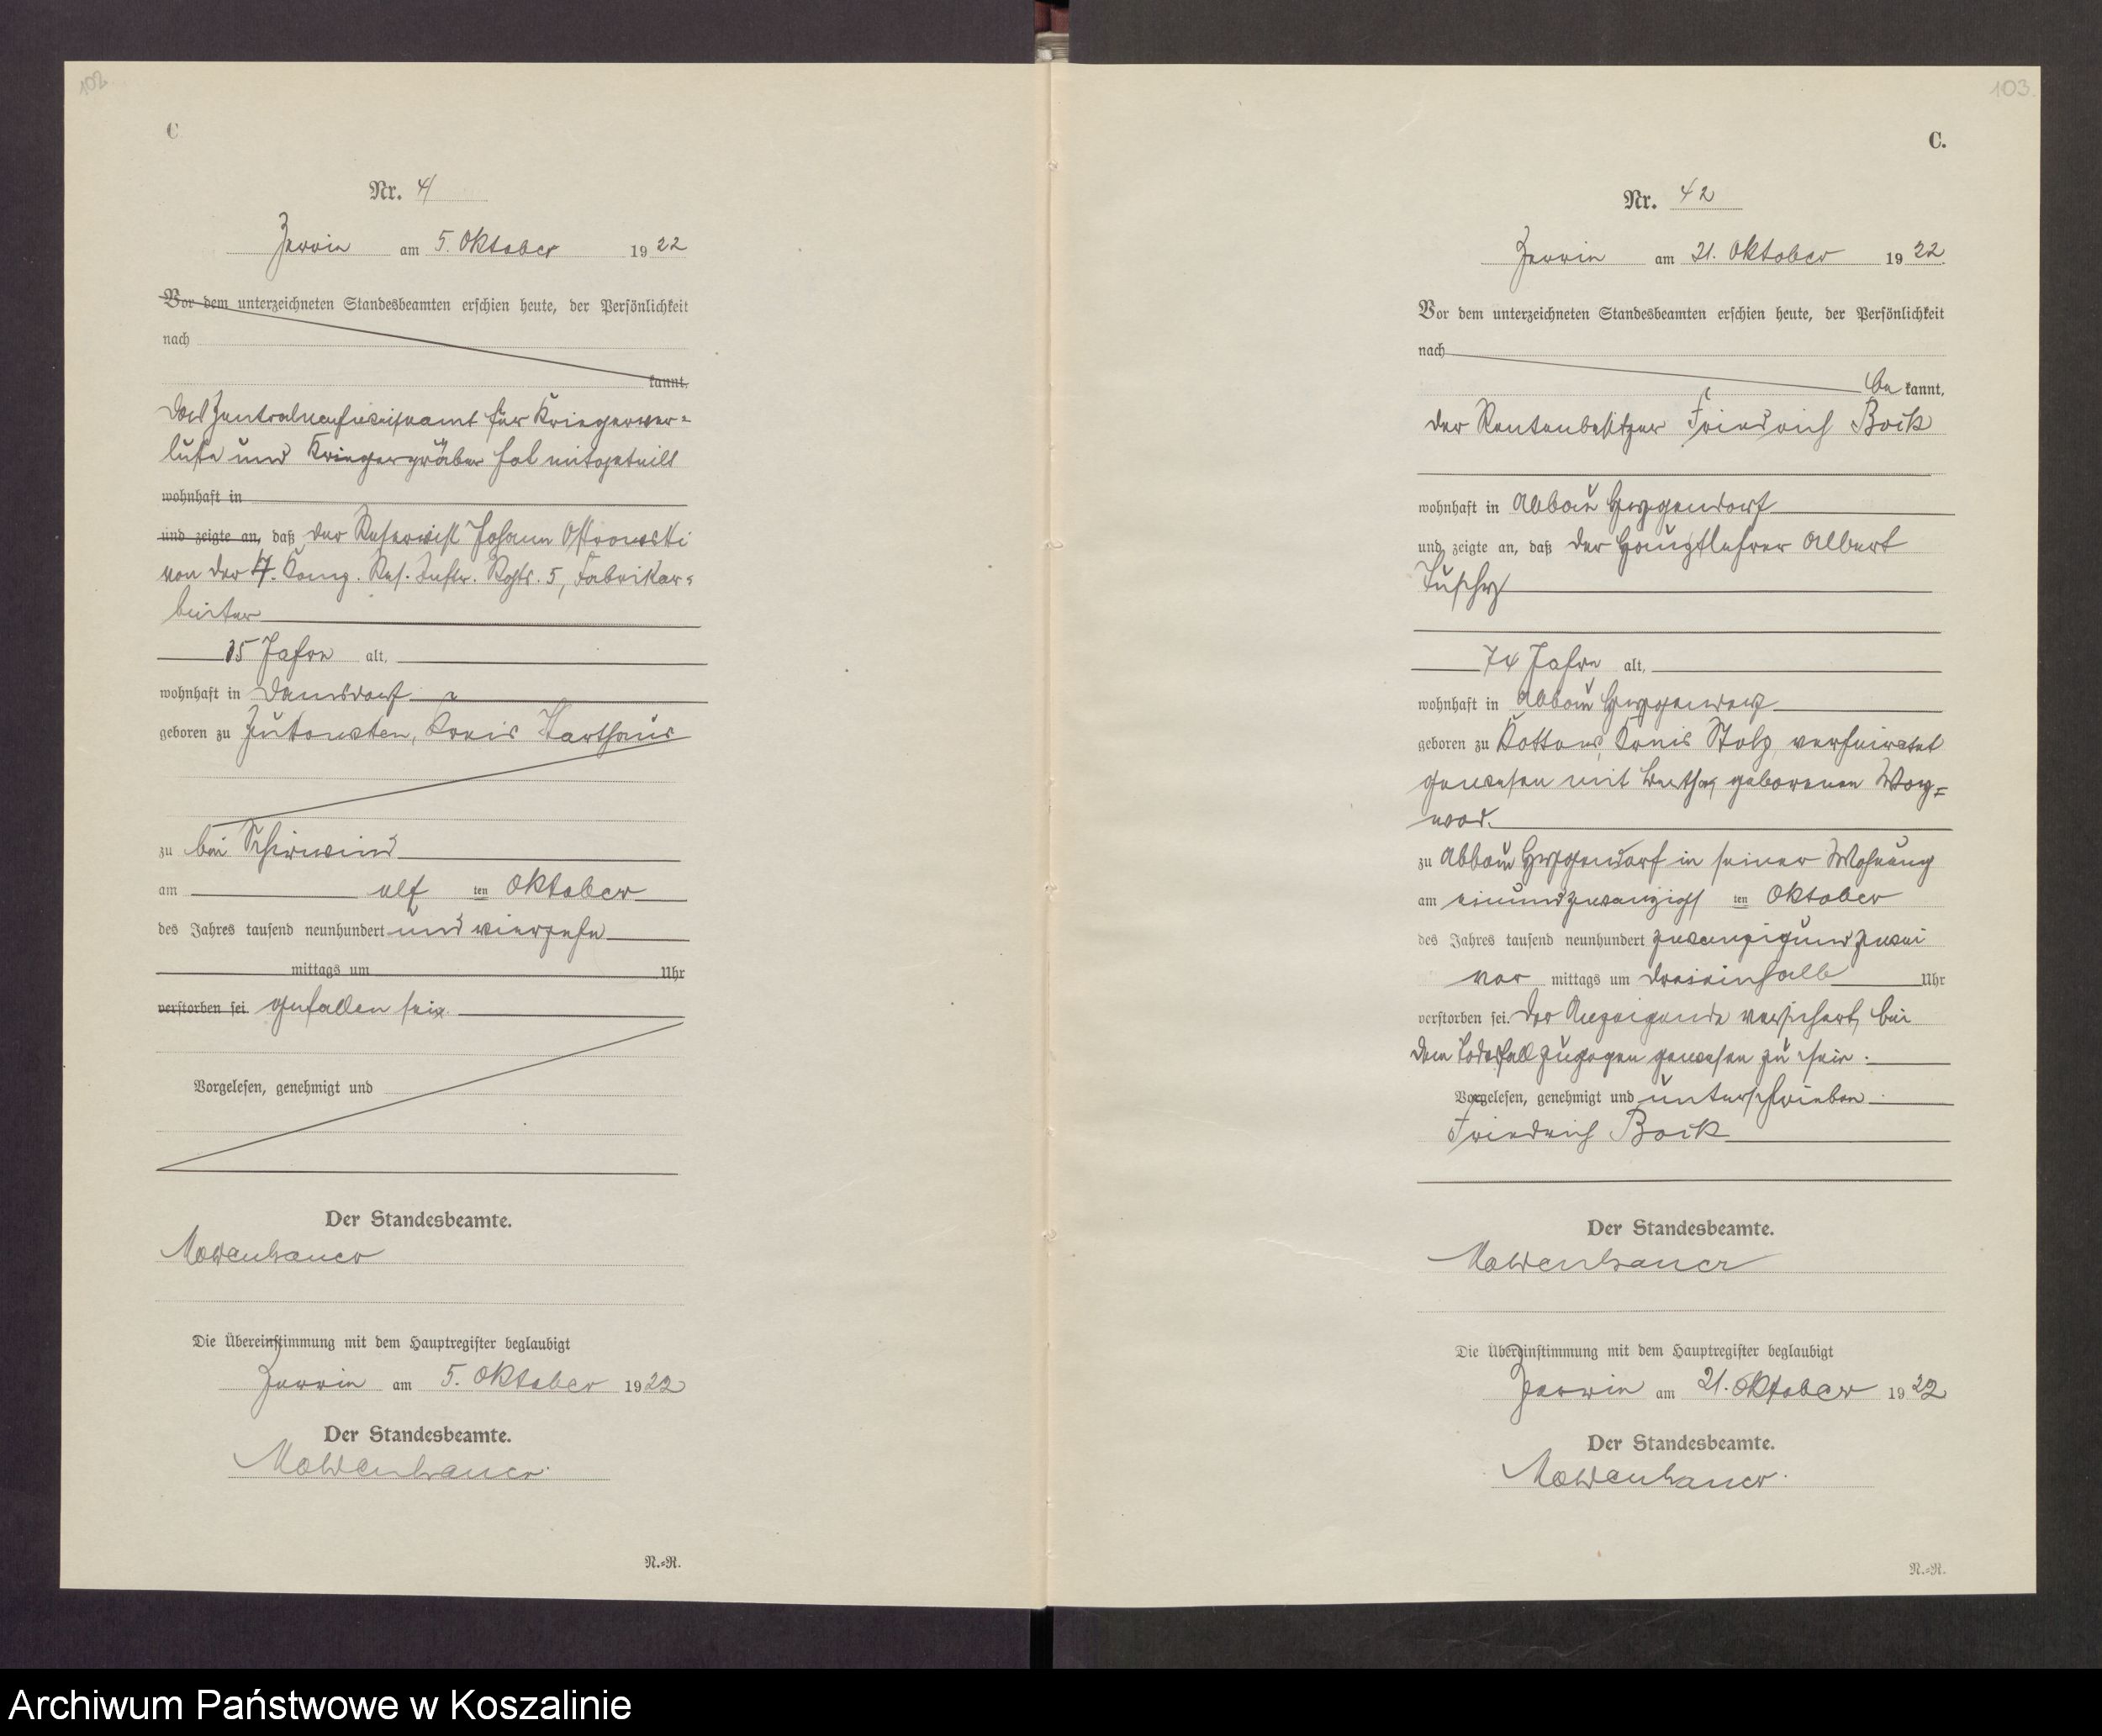 102
C
Nr. 41
Zerrin am 5. Oktober 1922
Vor dem unterzeichneten Standesbeamten erschien heute, der Persönlichkeit
nach
kannt,
Das Zentralnachweiseamt für Kriegerver=
luste und Kriegergräber hat mitgeteilt
wohnhaft in
und zeigte an, daß der Reservist Johann Ostrowski
von der 7. Komp. Res. Inftr. Rgts. 5, Fabrikar=
beiter
35 Jahre alt,
wohnhaft in Damsdorf
geboren zu Kreis Karthaus
zu bei Schirwind
am elf ten Oktober
des Jahres tausend neunhundert und vierzehn
mittags um Uhr
verstorben sei gefallen sei.
Vorgelesen, genehmigt und
Der Standesbeamte.
Modenhauer
Die Übereinstimmung mit dem Hauptregister beglaubigt
Zerrin am 5. Oktober 1922
Der Standesbeamte.
Modenhauer
N.=R.
103.
C.
Nr. 42
Zerrin am 21. Oktober 1922
Vor dem unterzeichneten Standesbeamten erschien heute, der Persönlichkeit
nach
be kannt,
der Rentenbesitzer Friedrich Boik
wohnhaft in Abbau
und zeigte an, daß der Hauptlehrer Albert
74 Jahre alt,
wohnhaft in Abbau
geboren zu Kottow, Kreis Stolp, verheiratet
gewesen mit Bertha, geborenen Woy=
wod.
zu Abbau in seiner Wohnung
am einundzwanzigst ten Oktober
des Jahres tausend neunhundert zwanzigundzwei
vor mittags um dreieinhalb Uhr
verstorben sei. Der Anzeigende versichert, bei
dem Todesfall zugegen gewesen zu sein.
Vorgelesen, genehmigt und unterschrieben
Friedrich Boik
Der Standesbeamte.
Modenhauer
Die Übereinstimmung mit dem Hauptregister beglaubigt
Zerrin am 21. Oktober 1922
Der Standesbeamte.
Modenhauer.
N.=R.
Archiwum Państwowe w Koszalinie